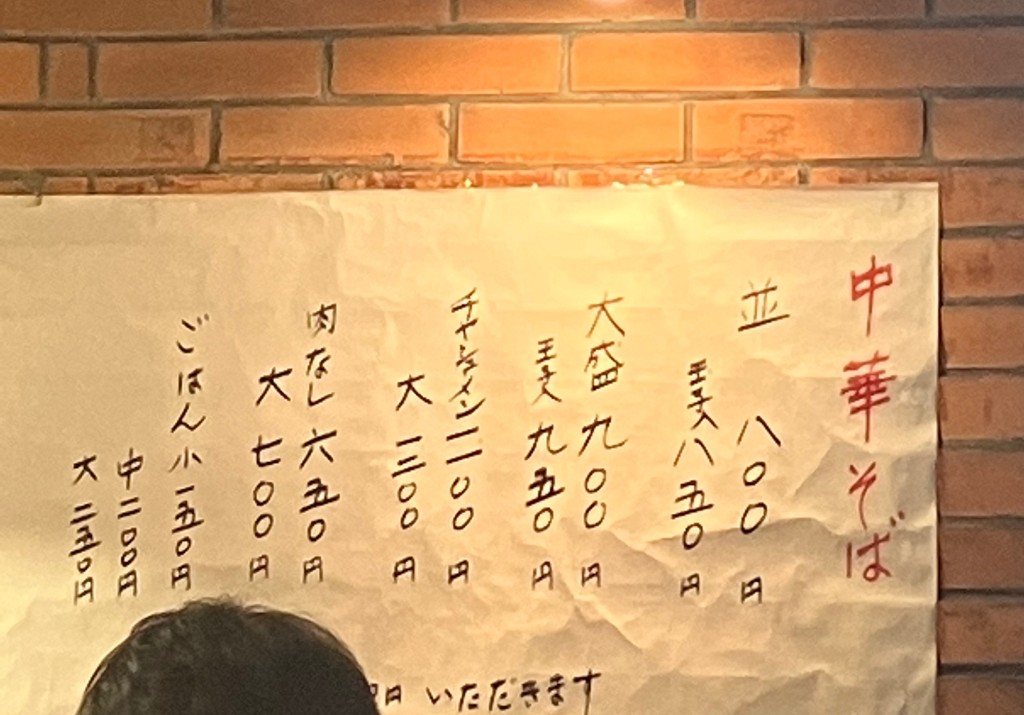 中華そば
並 八〇〇円
玉子入 八五〇円
大盛 九〇〇円
玉子入 九五〇円
チャーシューメン 一二〇〇円
大 一三〇〇円
肉なし 六五〇円
大 七〇〇円
ごはん 小 一五〇円
中 二〇〇円
大 二五〇円
円 いただきます